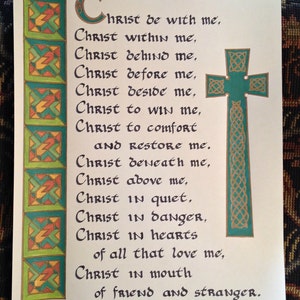 Christ be with me,
Christ within me,
Christ behind me,
Christ before me,
Christ beside me,
Christ to win me,
Christ to comfort
and restore me.
Christ beneath me,
Christ above me,
Christ in quiet,
Christ in danger,
Christ in hearts
of all that love me,
Christ in mouth
of friend and stranger.